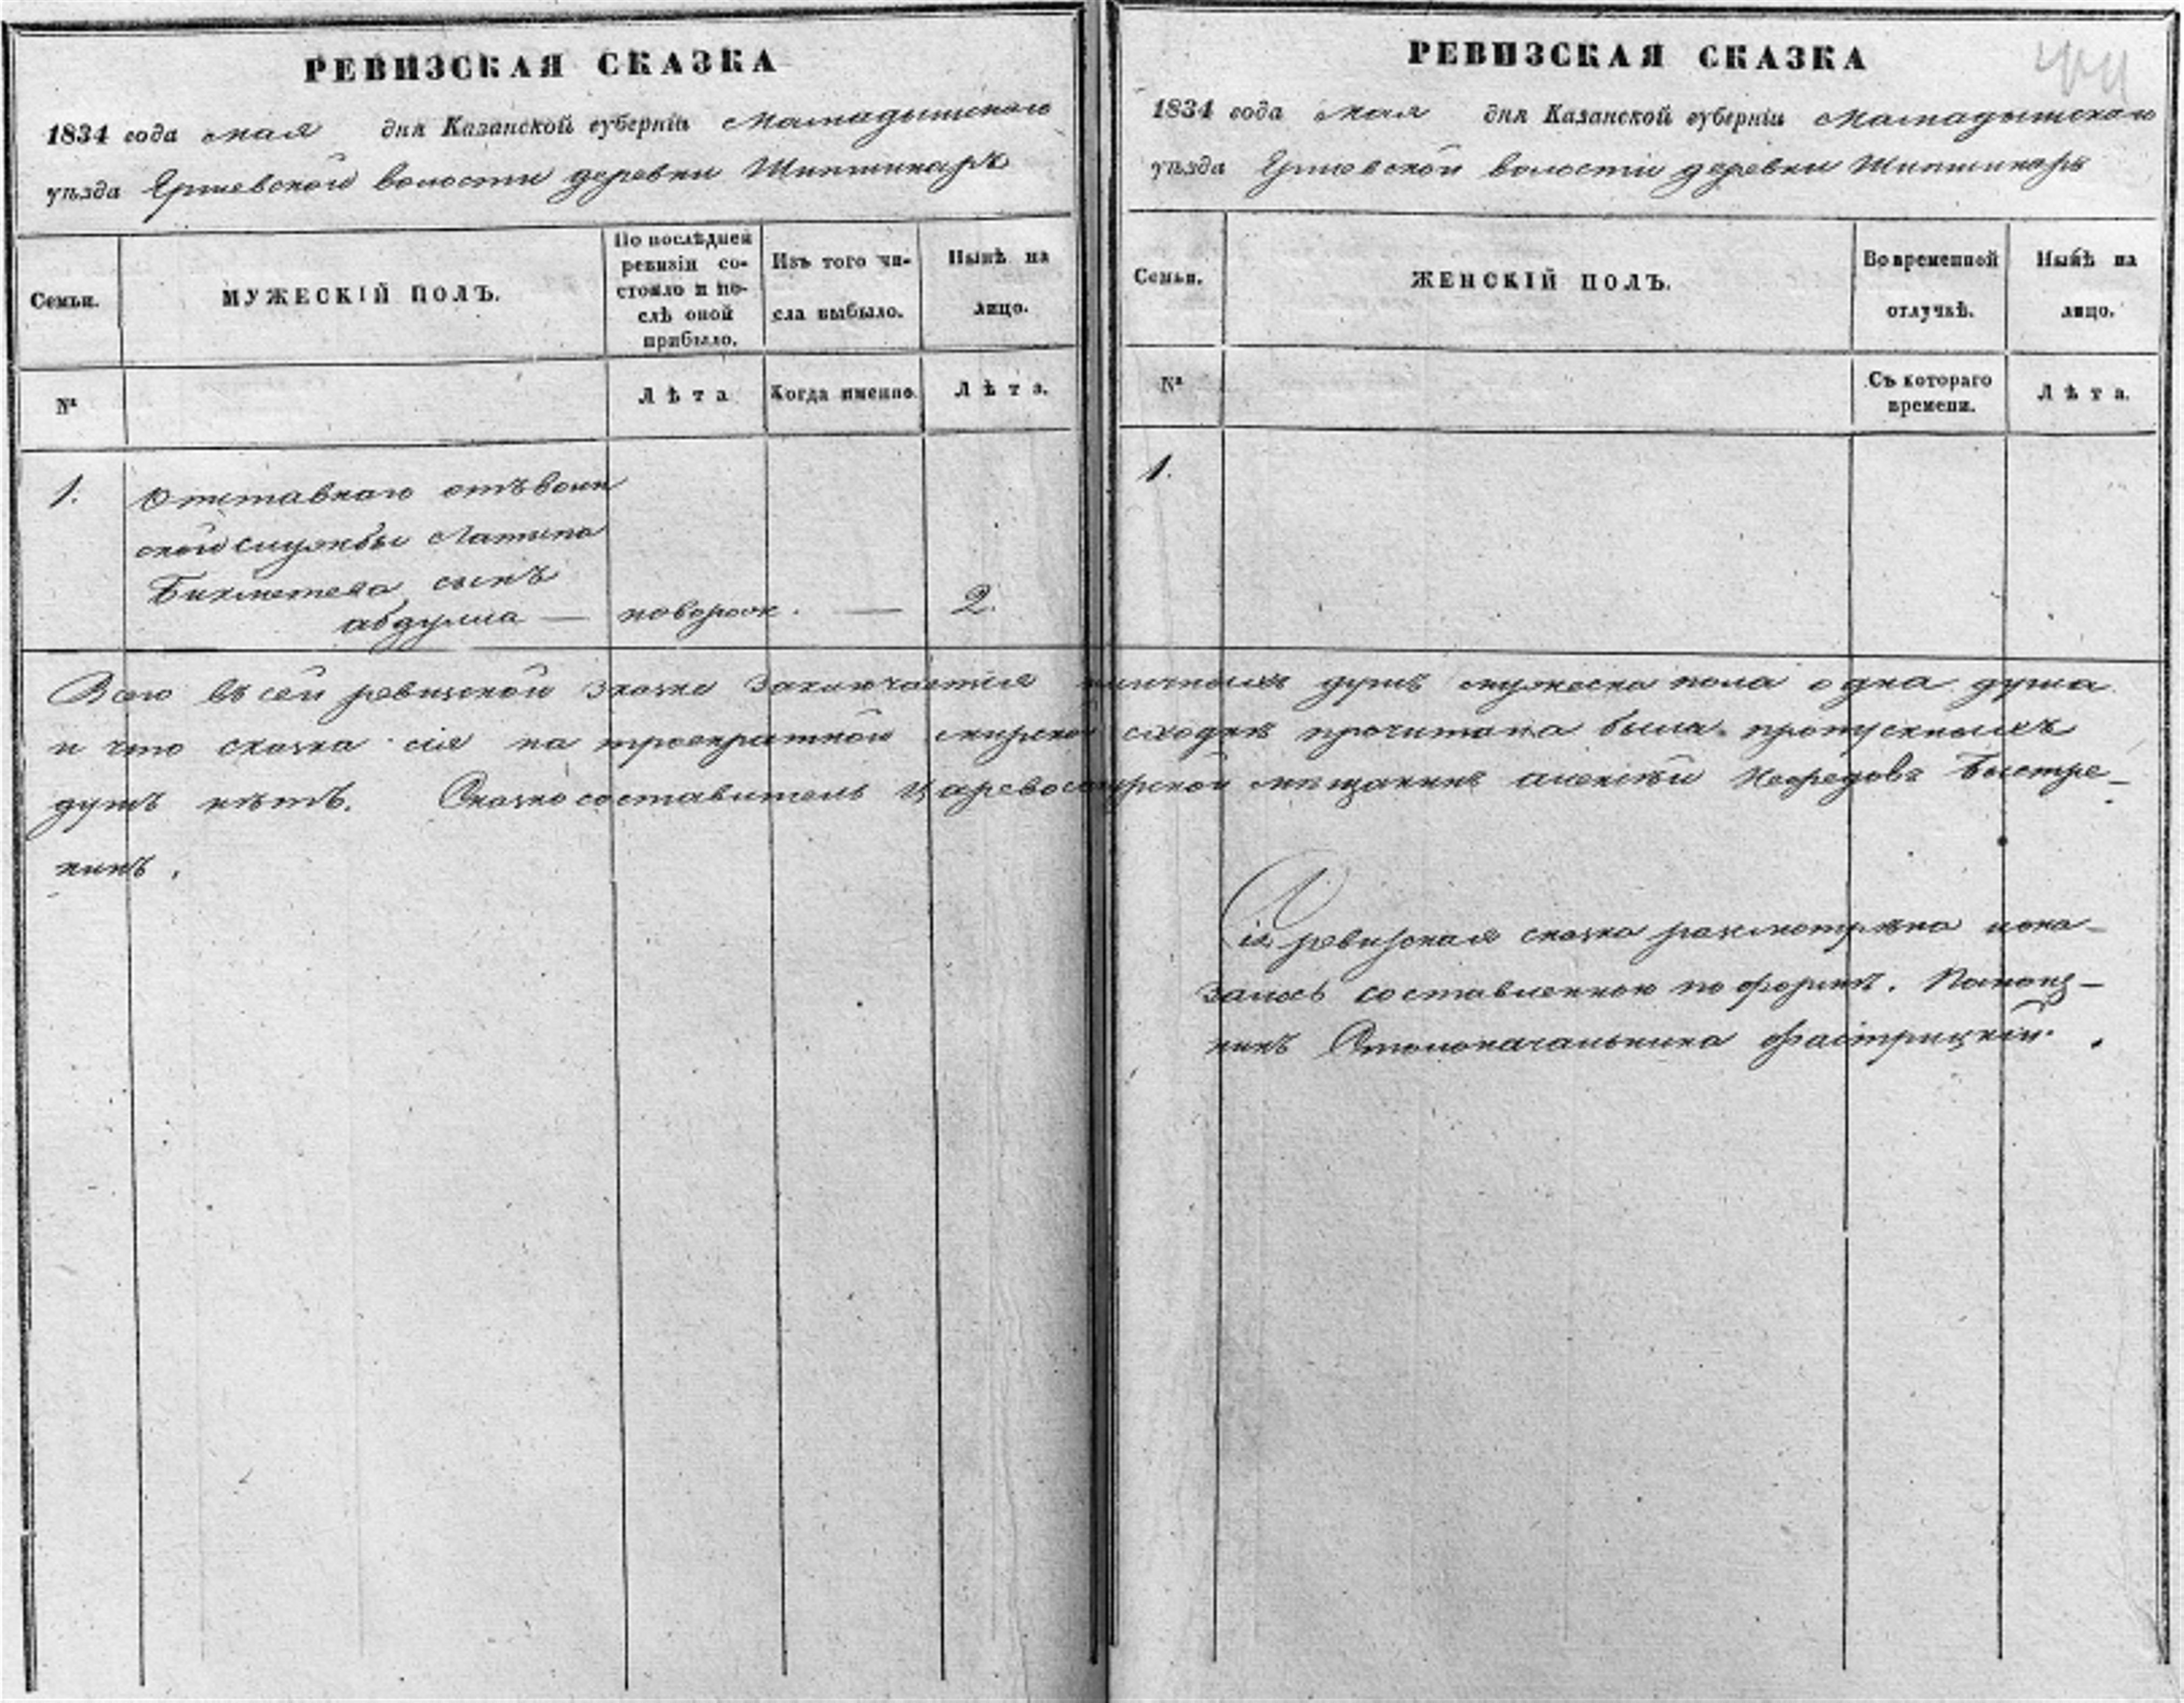 РЕВИЗСКАЯ СКАЗКА
1834 года мая дня Казанской губерніи Мамадышскаго
уѣзда волости деревни Шипшинаръ
Семьи.
МУЖЕСКІЙ ПОЛЪ.
По послѣдней
ревизіи со-
стояло и по-
слѣ оной
прибыло.
Изъ того чи-
сла выбыло.
Нынѣ на
лицо.
№
Лѣта
Когда именно.
Лѣта.
1.
Отставнаго отъ воин
ской службы Латыпа
Бикметева сынъ
абдулла — новорож. — 2.
РЕВИЗСКАЯ СКАЗКА
1834 года мая дня Казанской губерніи Мамадышскаго
уѣзда волости деревни Шипшинаръ
Семьи.
ЖЕНСКІЙ ПОЛЪ.
Во временной
отлучкѣ.
Нынѣ на
лицо.
№
Съ котораго
времени.
Лѣта.
1.
Всего въ сей ревизской сказке заключается душъ мужеска пола одна душа
и что сказка сія на троекратной мирской сходкѣ прочитана была. пропускныхъ
душъ нѣтъ. Сказкосоставитель Царевосанурской мѣщанинъ алексѣй Быстре-
нинъ.
Сія ревизская сказка разсмотрѣна и ока-
залось составленною по формѣ. Помощ-
никъ Столоначальника